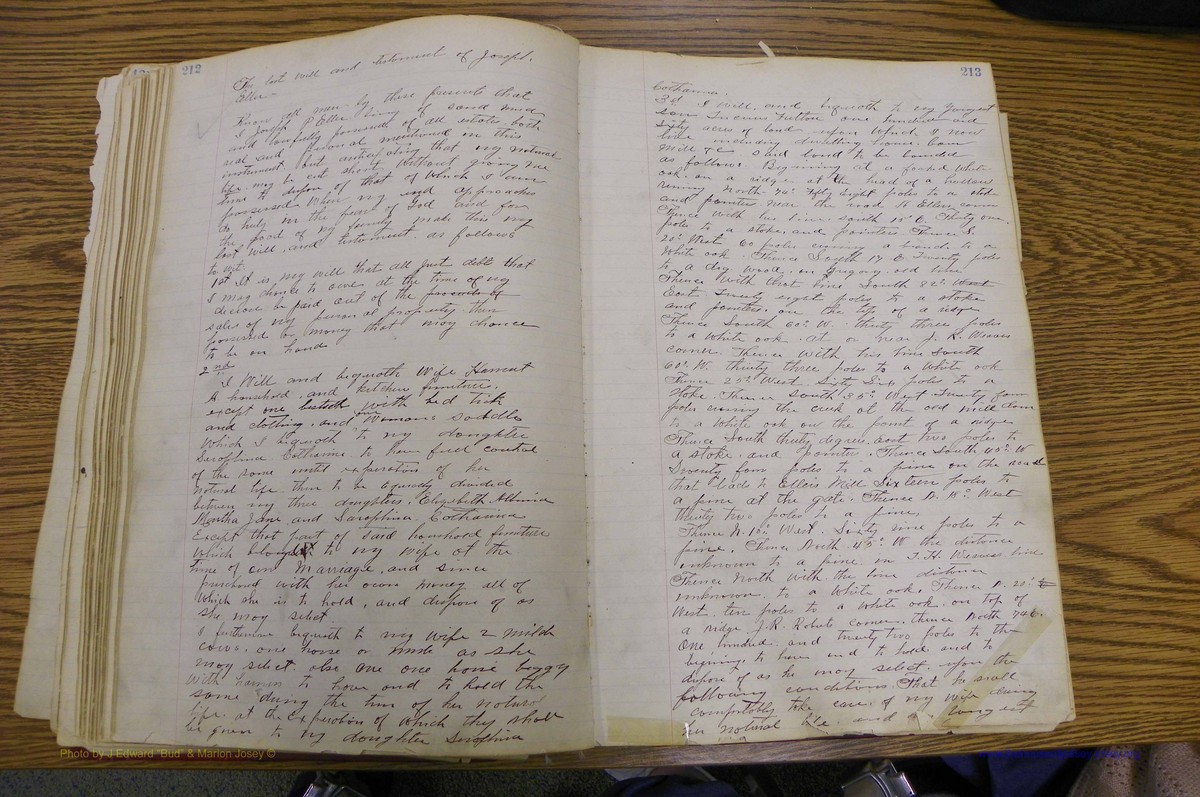 212
The last will and testament of Joseph.
Eller-
Know all men by these presents that
I Joseph P Eller being of sound mind
and lawfully possessed of all estates both
real and personal mentioned in this
instrument but anticipating that my natural
life may be cut short without giving me
time to dispose of that of which I am
possessed when my end approaches
do truly in the fear of God and for
the good of my family make this my
last will and testament as follows
to wit
1st It is my will that all just debts that
I may chance to owe at the time of my
decease be paid out of the proceeds of
sales of my personal property then
possessed or money that may chance
to be on hand
2nd
I Will and bequeth wife Hannah
household and kitchen furniture,
except one bedsted with bed tick
and clothing, and one Womans saddle
Which I bequeth to my daughter
Seraphina Catharine to have full control
of the same until experation of her
natural life then to be equally divided
between my three daughters, Elizabeth
Martha Jane and Seraphina Catharine
Except that part of said household furniture
which belonged to my wife at the
time of our Marriage, and since
purchased with her own money all of
Which she is to hold, and dispose of as
she may select.
I furthermore bequeth to my wife 2 milch
cows one horse or mule as she
may select also one one horse buggy
with harness to have and to hold the
same during the term of her natural
life, at the Experation of which they shall
be given to my daughter Seraphina
213
Catharine.
3rd I Will and bequeth to my youngest
son one hundred and
Sixty acres of land upon which I now
live including dwelling house, barn
Mill &C Said land to be bounded
as follows Beginning at a forked white-
oak on a ridge at the head of a hollow
runing North 70° fifty Eight poles to a stake
and pointers near the road Ellers corner
Thence with his line south 15° E Thirty one
poles to a stake and pointers Thence S.
20° West 60 poles crossing a branch to a
White oak Thence South 17° E Twenty poles
to a dog wood in Gregory old line
Thence With that line South 82° West
East twenty eight poles to a stake
and pointers on the top of a ridge
Thence South 60° W. thirty three poles
to a white oak at or near J. R. Weaver
corner. Thence With his line South
60° W. thirty three poles to a white oak
Thence 25° West Sixty Six poles to a
stake. Thence South 35° West twenty four
poles crossing the creek at the old mill dam
to a white oak on the point of a ridge
Thence South thirty degrees East two poles to
a stake and pointers. Thence South 45° W
Seventy four poles to a pine on the road
that leads to Ellers Mill Sixteen poles to
a pine at the gate. Thence N. 18° West
thirty two poles to a pine,
Thence N. 10° West. Sixty nine poles to a
pine Thence North 45° W the distance
unknown to a pine in T. H. Weavers line
Thence North with the line distance
unknown to a White oak, Thence N. 20°
West ten poles to a White oak on top of
a ridge J. R. corner, thence North 74 E.
One hundred and twenty two poles to the
begining to have and to hold and to
dispose of as he may select upon the
following conditions That he shall
comfortably take care of my Wife during
her natural life and
Photo by J Edward "Bud" & Marion Josey ©